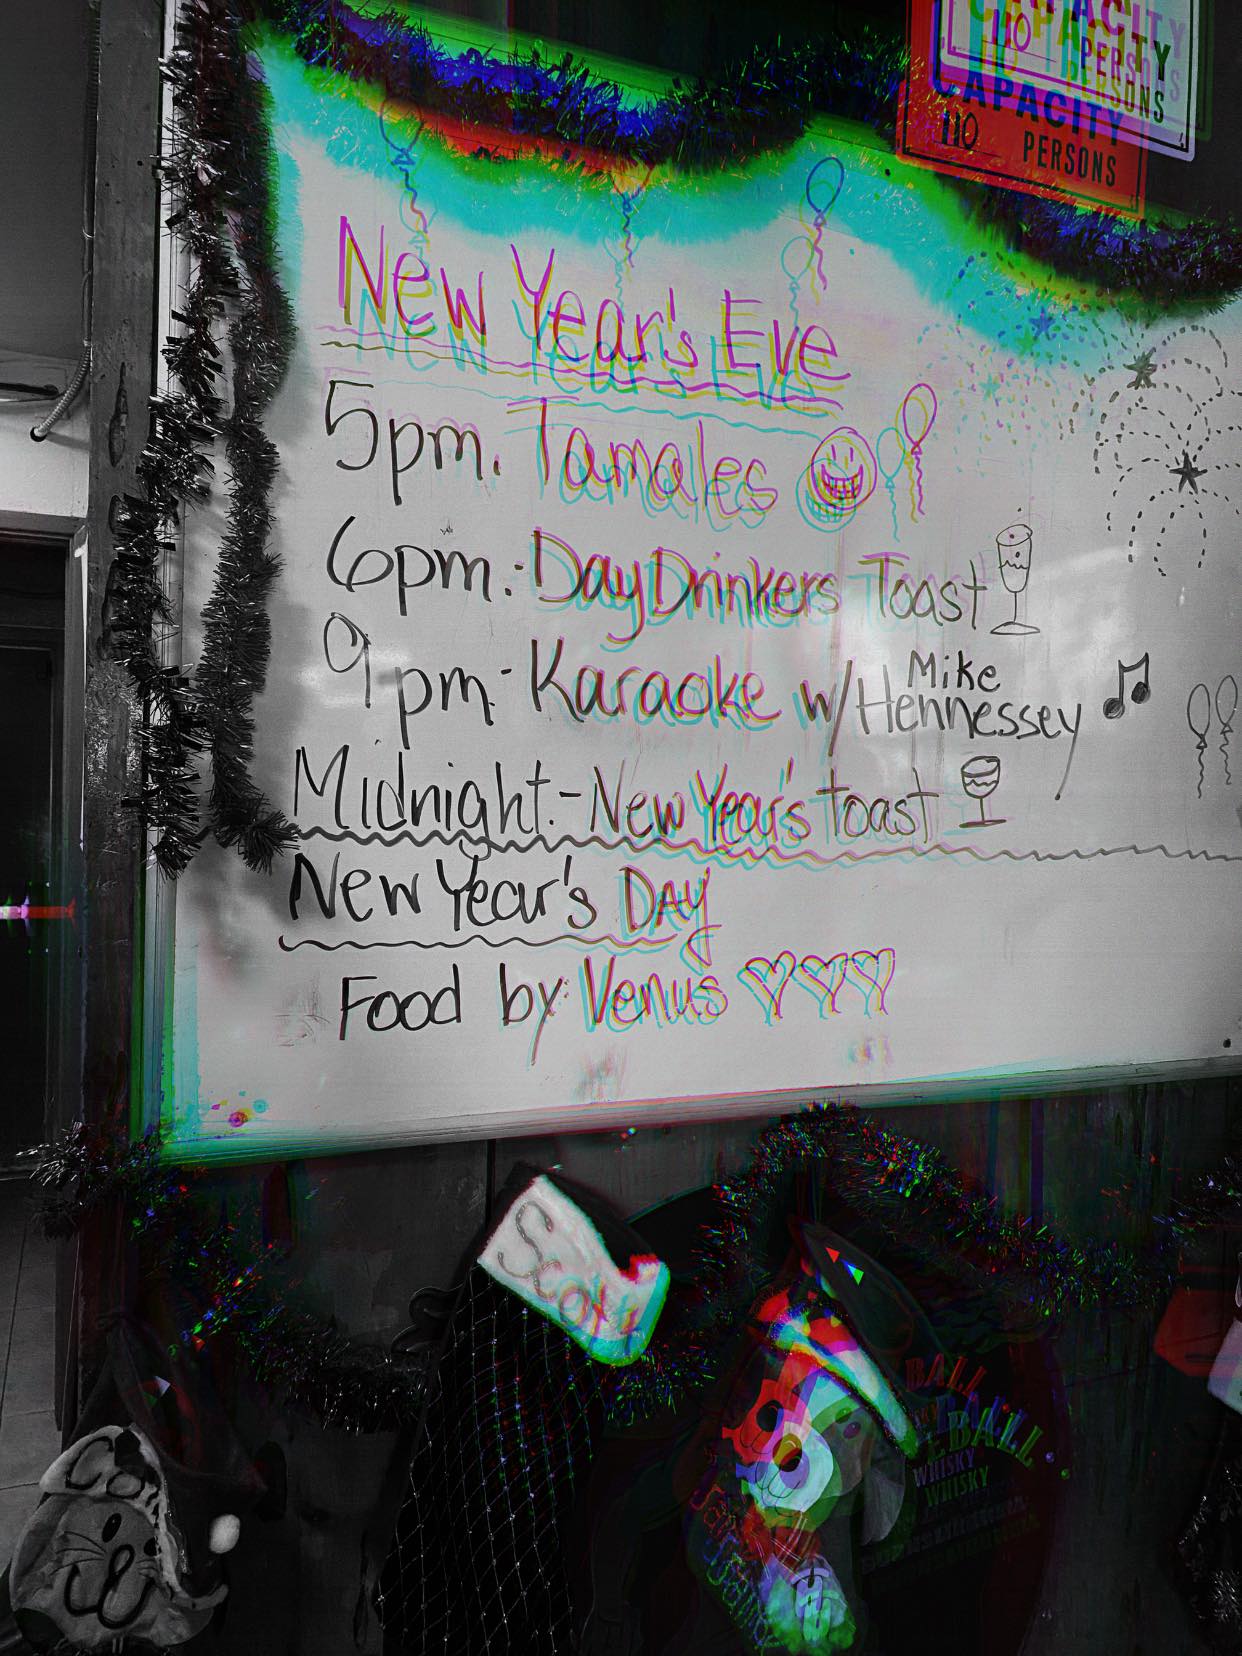 CAPACITY
110 PERSONS
CAPACITY
110 PERSONS
New Year's Eve
5pm. Tamales
6pm: Day Drinkers Toast
9pm: Karaoke w/ Mike Hennessey
Midnight - New Year's Toast
New Year's DAY
Food by Venus
Scott
BALL
WHISKY
WHISKY